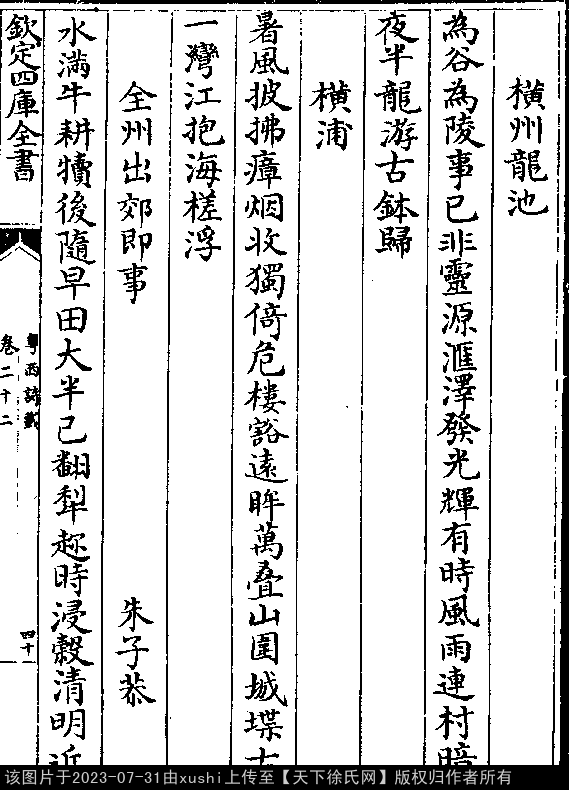 橫州龍池
為谷為陵事已非靈源滙澤發光輝有時風雨連村暗
夜半龍游古鉢歸
橫浦
暑風披拂瘴烟收獨倚危樓豁遠眸萬疊山圍城堞
一灣江抱海槎浮
全州出郊即事 朱子恭
水滿牛耕犢後隨早田大半已翻犁趂時浸穀清明近
欽定四庫全書
粤西詩載
卷二十二
四十
该图片于2023-07-31由xushi上传至【天下徐氏网】版权归作者所有